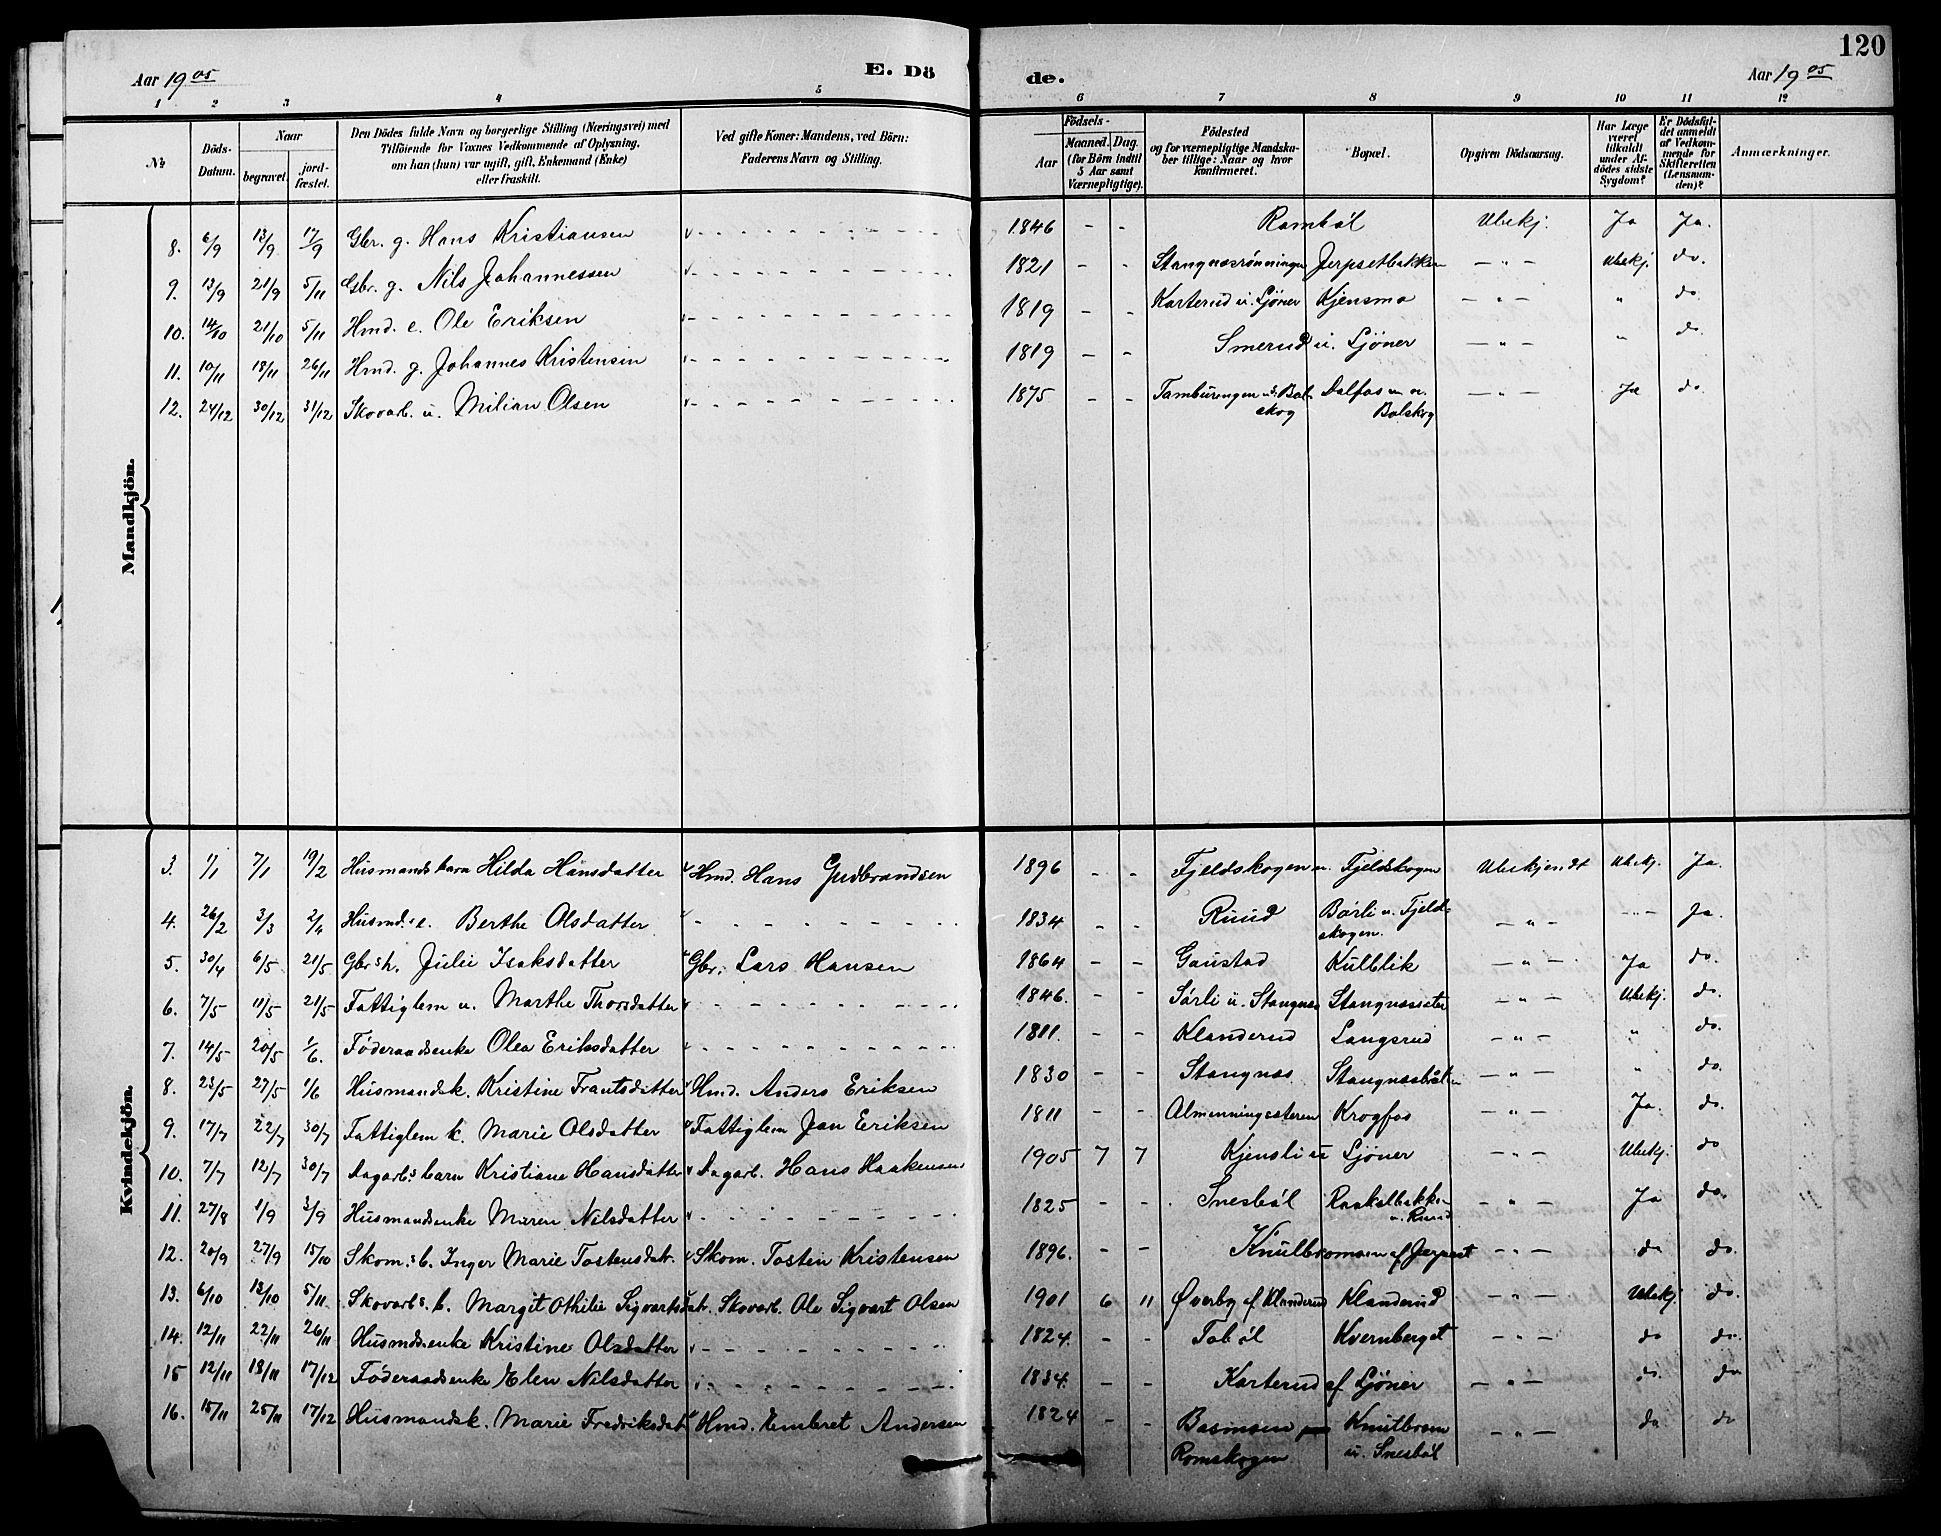 120
Aar 1905 E. Dö de. Aar 1905
1 2 3 4 5 6 7 8 9 10 11 12
№
Döds-Datum.
Naar
begravet.
jord-fæstet.
Den Dödes fulde Navn og borgerlige Stilling (Næringsvei) med
Tilföiende for Voxnes Vedkommende af Oplysning,
om han (hun) var ugift, gift, Enkemand (Enke)
eller fraskilt.
Ved gifte Koner: Mandens, ved Börn:
Faderens Navn og Stilling.
Födsels-
Aar
Maaned. Dag.
(for Börn indtil
5 Aar samt
Værnepligtige).
Födested
og for værnepligtige Mandska-
ber tillige: Naar og hvor
konfirmeret.
Bopæl.
Opgiven Dödsaarsag.
Har Læge
været
tilkaldt
under Af-
dödes sidste
Sygdom?
Er Dödsfal-
det anmeldt
af Vedkom-
mende for
Skifteretten
(Lensman-
den)?
Anmærkninger.
Mandkjön.
8. 6/9 13/9 17/9 Gbr. g. Hans Kristiansen 1846 - - Rambøl Ubekj. Ja Ja.
9. 13/9 21/9 5/11 Gbr. g. Nils Johannessen 1821 - - Stangnæsrønningen Jerpsetbakken - " - Ubekj. do.
10. 14/10 21/10 5/11 Hmd. e. Ole Eriksen 1819 - - Karterud u. Sjøner Kjensmo - " - " do
11. 10/11 18/11 26/11 Hmd. g. Johannes Kristensen 1819 - - Smerud u. Sjöner - " - " do.
12. 24/12 30/12 31/12 Skovarb. u. Milian Olsen 1875 - - Tamburengen u. Bol- Dalfos u. n. - " - Ja do.
skog Bolskog
Kvindekjön.
3. 1/1 7/1 19/2 Husmandsbarn Hilda Hansdatter Hmd. Hans Gudbrandsen 1896 - - Fjeldskogen u. Fjeldskogen Ubekjendt Ubekj. Ja.
4. 26/2 3/3 2/4 Husmd.s e. Berthe Olsdatter 1834 - - Ruud Børli u. Fjeld- - " - - " - Ja.
skogen.
5. 30/4 6/5 21/5 Gbr.s h. Julie Isaksdatter Gbr. Lars Hansen 1864 - - Gaustad Kulblik - " - Ja do.
6. 7/5 11/5 21/5 Fattiglem u. Marthe Thorsdatter 1846. - - Sørli u. Stangnæs Stangnæsseter - " - Ubekj. do.
7. 14/5 20/5 1/6. Føderaadsenke Olea Eriksdatter 1811. - - Klanderud Langsrud - " - " do.
8. 23/5 27/5 1/6 Husmandsk. Kristine Frantsdatter Hmd. Anders Eriksen 1830 - - Stangnæs Stangnæsbråten - " - " do.
9. 17/7 22/7 30/7 Fattiglem k. Marie Olsdatter Fattiglem Jan Eriksen 1811 - - Almenningseteren Krogfos - " - Ja. do.
10. 7/7 12/7 30/7 Dagarb.s barn Kristiane Hansdatter Dagarb. Hans Haakensen 1905 7 7 Kjensli u Sjöner - " - Ubekj. do
11. 27/8 1/9 3/9 Husmandsenke Maren Nilsdatter 1825 - - Snesbøl Raskelbakken - " - Ja do.
u. Ruud
12. 20/9 27/9 15/10 Skom.s b. Inger Marie Tostensdatr. Skom. Tosten Kristensen 1896. - - Knulbromoen af Jerpset - " - do do.
13. 6/10 13/10 5/11 Skovarb.s b. Margit Othilie Sigvartsdatr. Skovarb. Ole Sigvart Olsen 1901 6 11 Øverby af Klanderud Klanderud - " - Ubekj. do.
14. 12/11 22/11 26/11 Husmdsenke Kristine Olsdatter 1824. - - Tobøl Kvernberget - " - do do.
15 12/11 18/11 17/12 Føderaadsenke Elen Nilsdatter 1834. - - Karterud af Sjöner - " - do. do
16. 15/11 25/11 17/12 Husmandsk. Marie Fredriksdatr Hmd. Embret Andersen 1824 - - Basmoen Knutbroen - " - do do
Romskogen u. Snesbøl